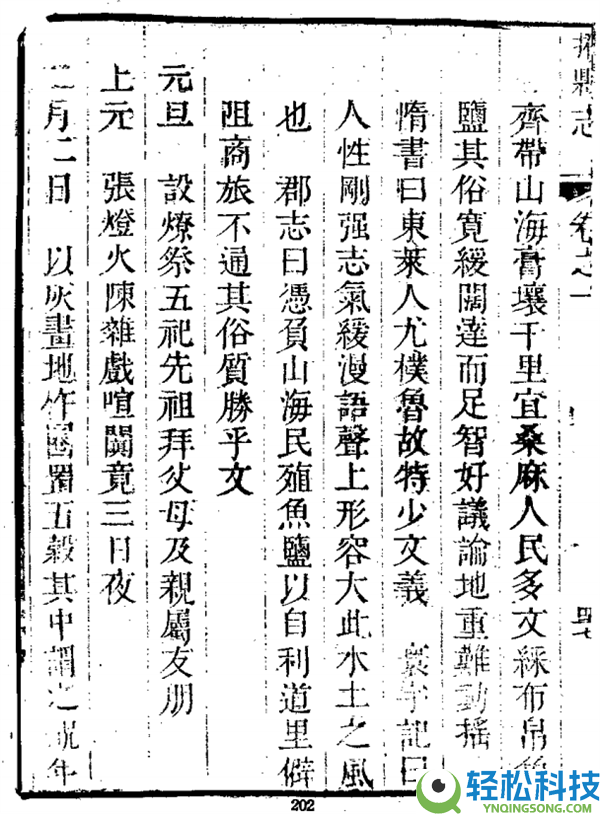 志 卷之一
齊帶山海膏壤千里宜桑麻人民多文綵布帛魚
鹽其俗寛緩闊達而足智好議論地重難動搖
隋書曰東萊人尤樸魯故特少文義 寰宇記曰
人性剛强志氣緩漫語聲上形容大此水土之風
也 郡志曰憑負山海民殖魚鹽以自利道里僻
阻商旅不通其俗質勝乎文
元旦 設燎祭五祀先祖拜父母及親屬友朋
上元 張燈火陳雜戲喧闐竟三日夜
二月二日 以灰畫地作囷置五穀其中謂之
202
轻松科技
YNQINGSONG.COM